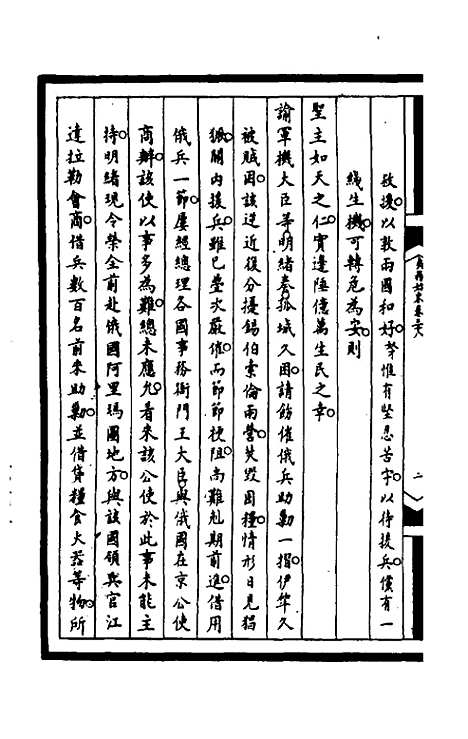 救援。以敦兩國和好。等惟有堅忍苦守。以待援兵。儻有一
綫生機。可轉危為安。則
聖主如天之仁。實邊陲億萬生民之幸。
諭軍機大臣等明緒奏孤城久困。請飭催俄兵助勦一摺。伊犂久
被賊困。該逆近復分擾錫伯索倫兩營。焚毀囤糧。情形日見猖
獗。關內援兵。雖已疊次嚴催。而節節梗阻。尚難剋期前進。借用
俄兵一節。屢經總理各國事務衙門王大臣與俄國在京公使
商辦。該使以事多為難。總未應允。看來該公使於此事未能主
持。明緒現令榮全前赴俄國阿里瑪圖地方。與該國領兵官江
達拉勒會商。借兵數百名前來助勦。並借貸糧食火器等物。所
二